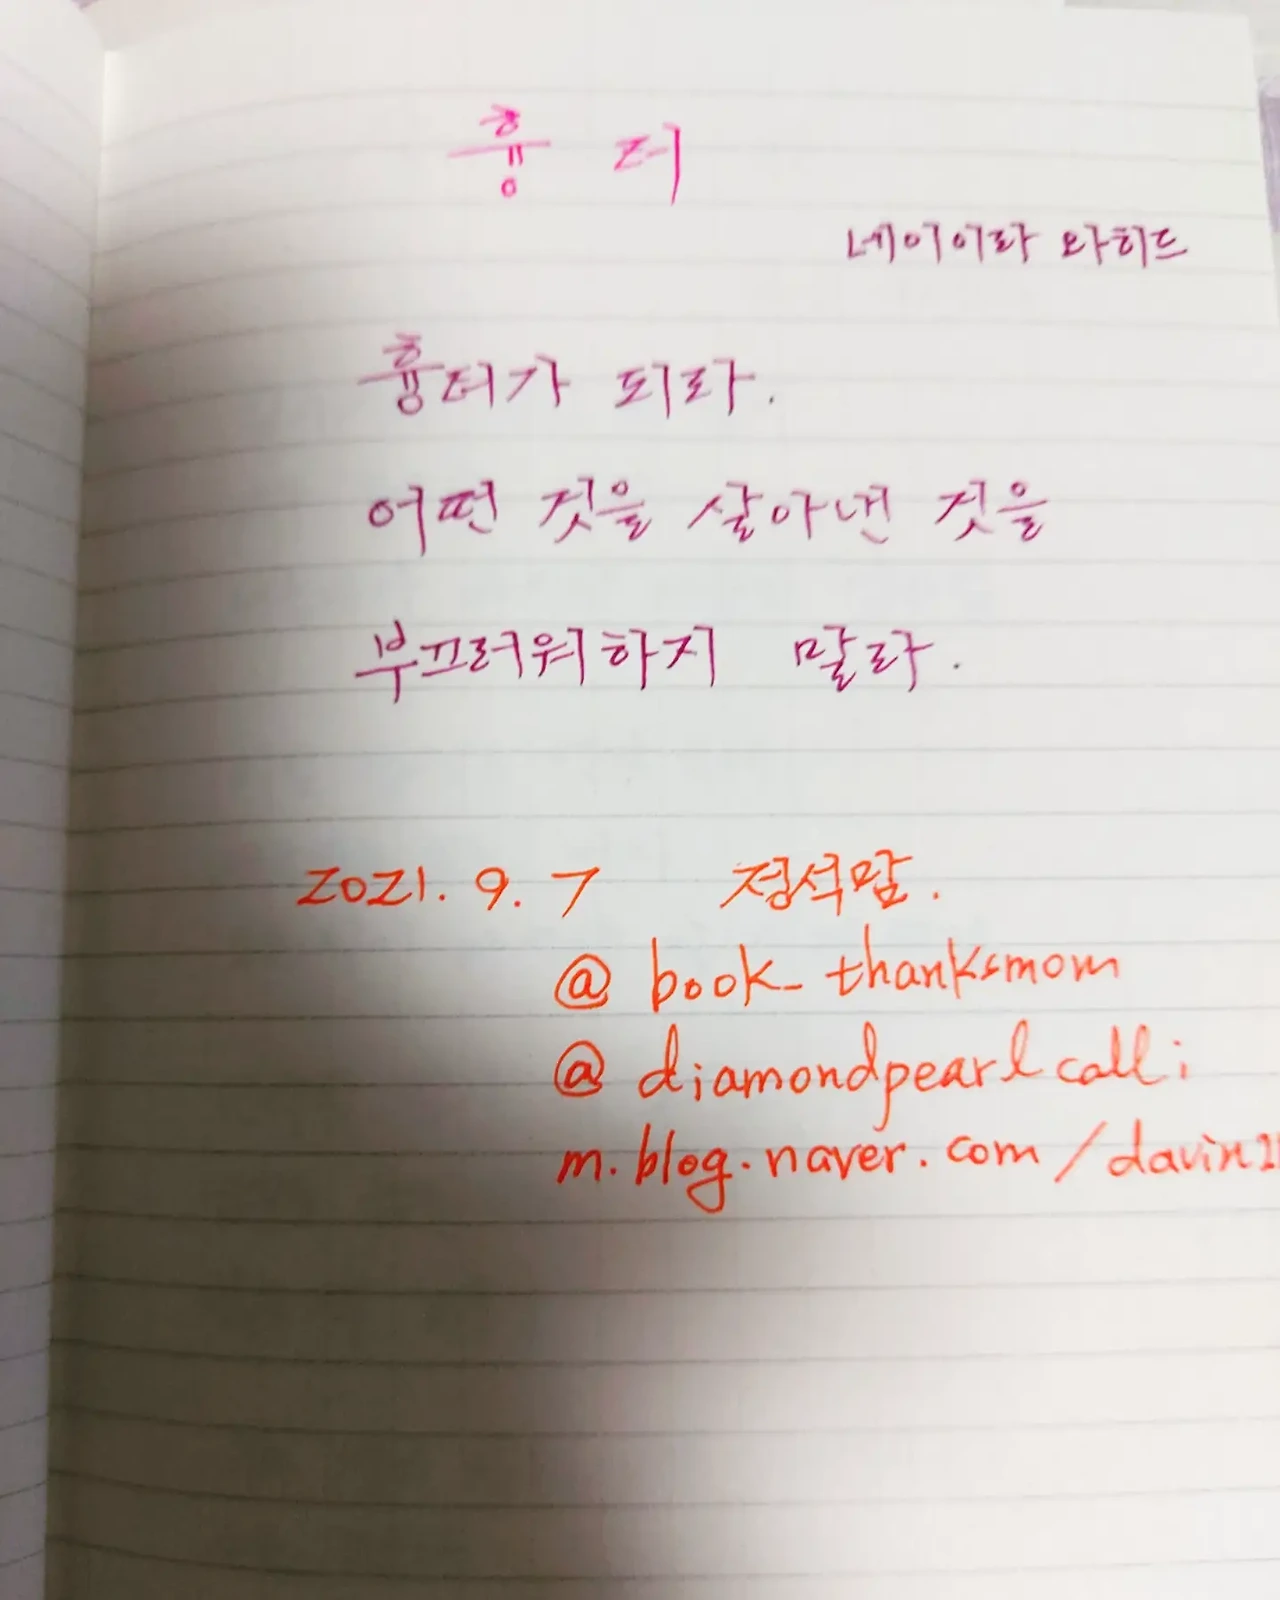 흉 터
네이이라 와히드
흉터가 되라.
어떤 것을 살아낸 것을
부끄러워하지 말라.
2021. 9. 7 정석맘.
@ book_thanksmom
@ diamondpearlcalli
m.blog.naver.com/davin21